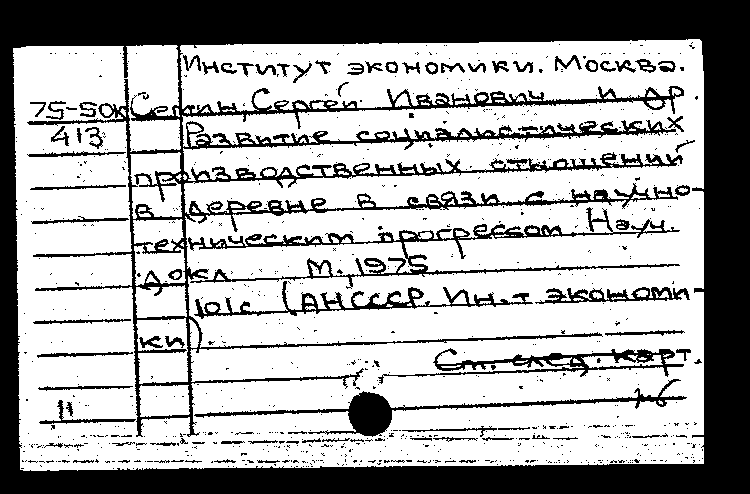 Институт экономики. Москва.
75-50к Семин, Сергей Иванович и др.
413 Развитие социалистических
производственных отношений
в деревне в связи с научно-
техническим прогрессом. Науч.
докл М., 1975.
101с. (АНСССР. Ин-т экономи-
ки).
См. след. карт.
11